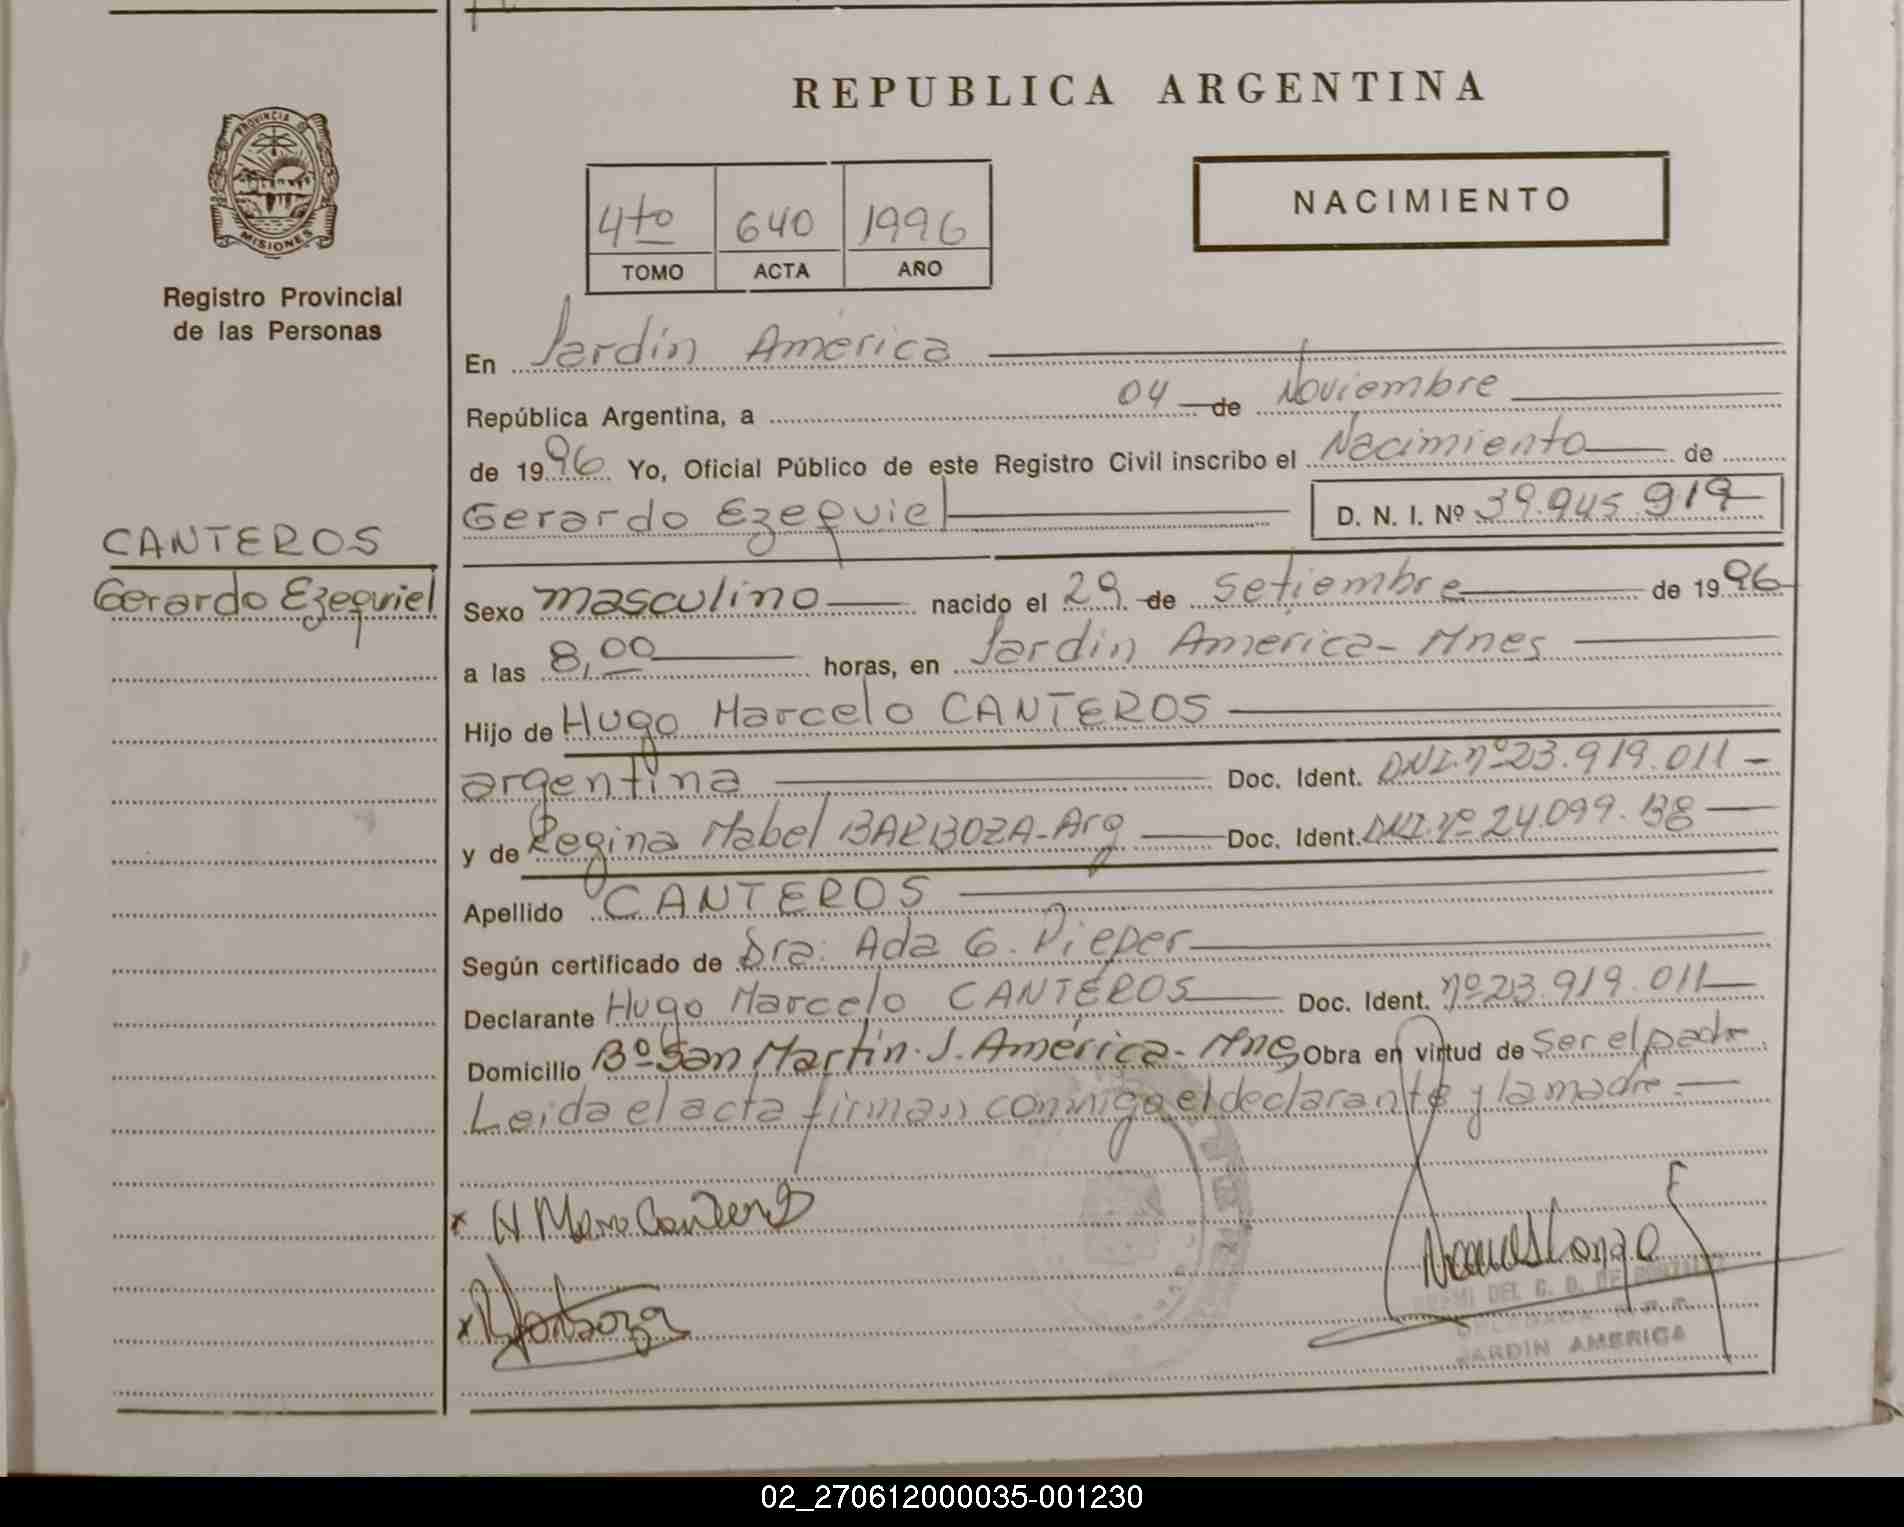 REPUBLICA ARGENTINA
PROVINCIA DE
MISIONES
Registro Provincial
de las Personas
4to 640 1996
TOMO ACTA AÑO
NACIMIENTO
En Jardín América
República Argentina, a 04 de Noviembre
de 1996 Yo, Oficial Público de este Registro Civil inscribo el Nacimiento de
Gerardo Ezequiel D. N. I. Nº 39.945.919
CANTEROS
Gerardo Ezequiel
Sexo masculino nacido el 29 de Setiembre de 1996
a las 8,00 horas, en Jardín America - Mnes
Hijo de Hugo Marcelo CANTEROS
argentina Doc. Ident. DNI. nº 23.919.011 -
y de Regina Mabel BARBOZA - Arg Doc. Ident. DNI. nº 24.099.138
Apellido CANTEROS
Según certificado de Dra: Ada G. Pieper
Declarante Hugo Marcelo CANTEROS Doc. Ident. nº 23.919.011
Domicilio Bº San Martín. J. América - Mnes Obra en virtud de Ser el padre
Leida el acta firman conmigo el declarante y la madre. -
x H. Canteros
x Barboza
DEL C. D. DE GONZALEZ
DELEGADA
JARDIN AMERICA
02_270612000035-001230